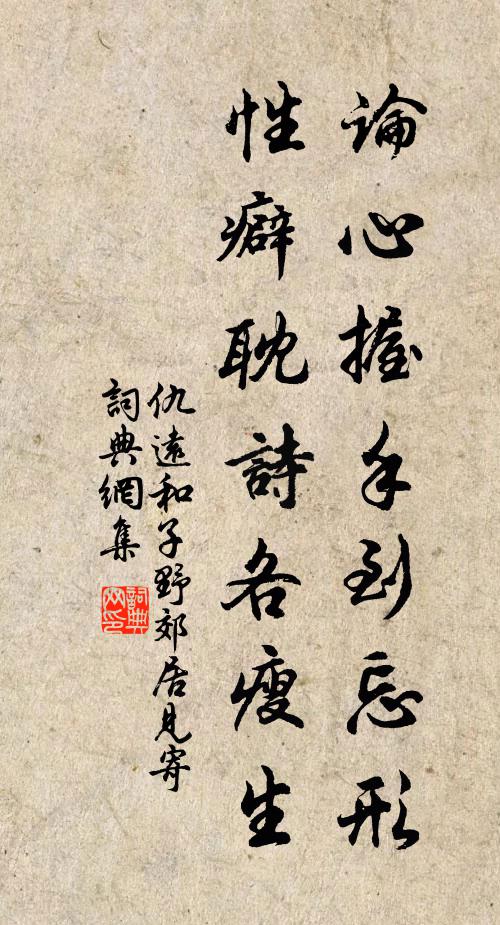 論心握手到忘形
性癖耽詩各瘦生
仇遠和子野郊居見寄
詞典網集
詞典网印